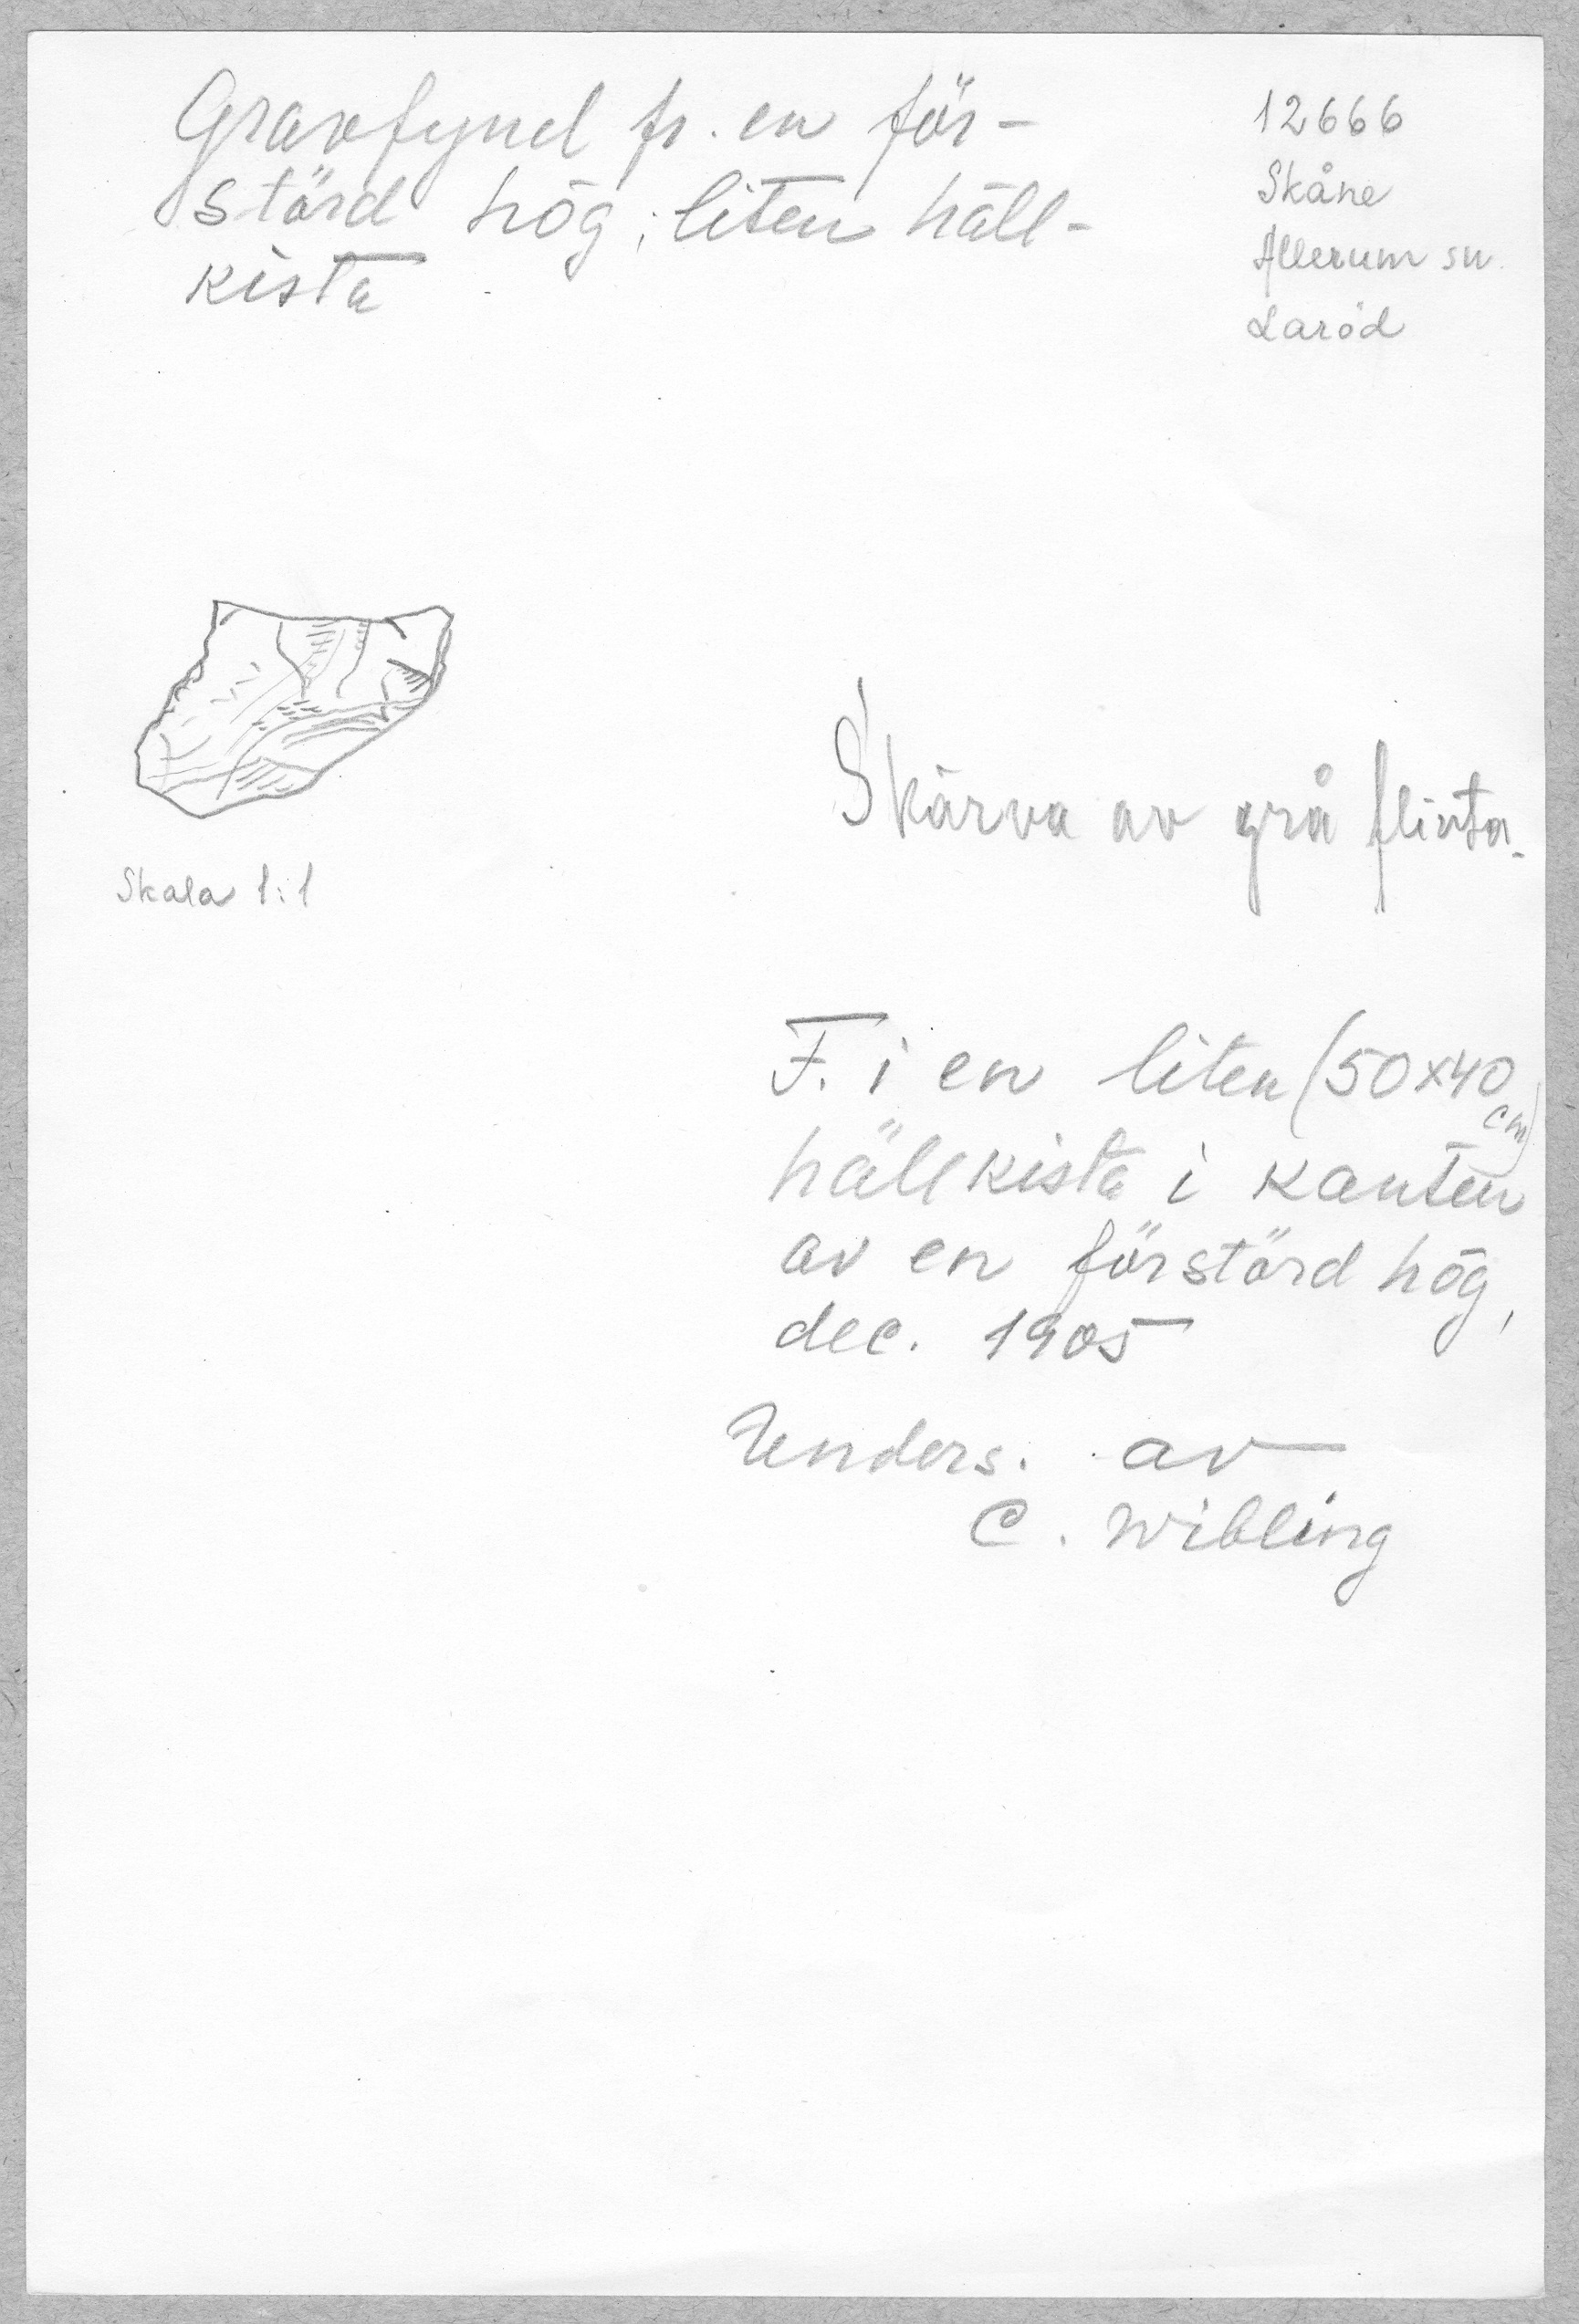 Gravfynd fr. en för-
störd hög; liten häll-
kista
12666
Skåne
Allerum sn
Laröd
Skärva av grå flinta.
Skala 1:1
F. i en liten (50x40
cm)
hällkista i kanten
av en förstörd hög,
dec. 1905
Unders. av
C. Wibling